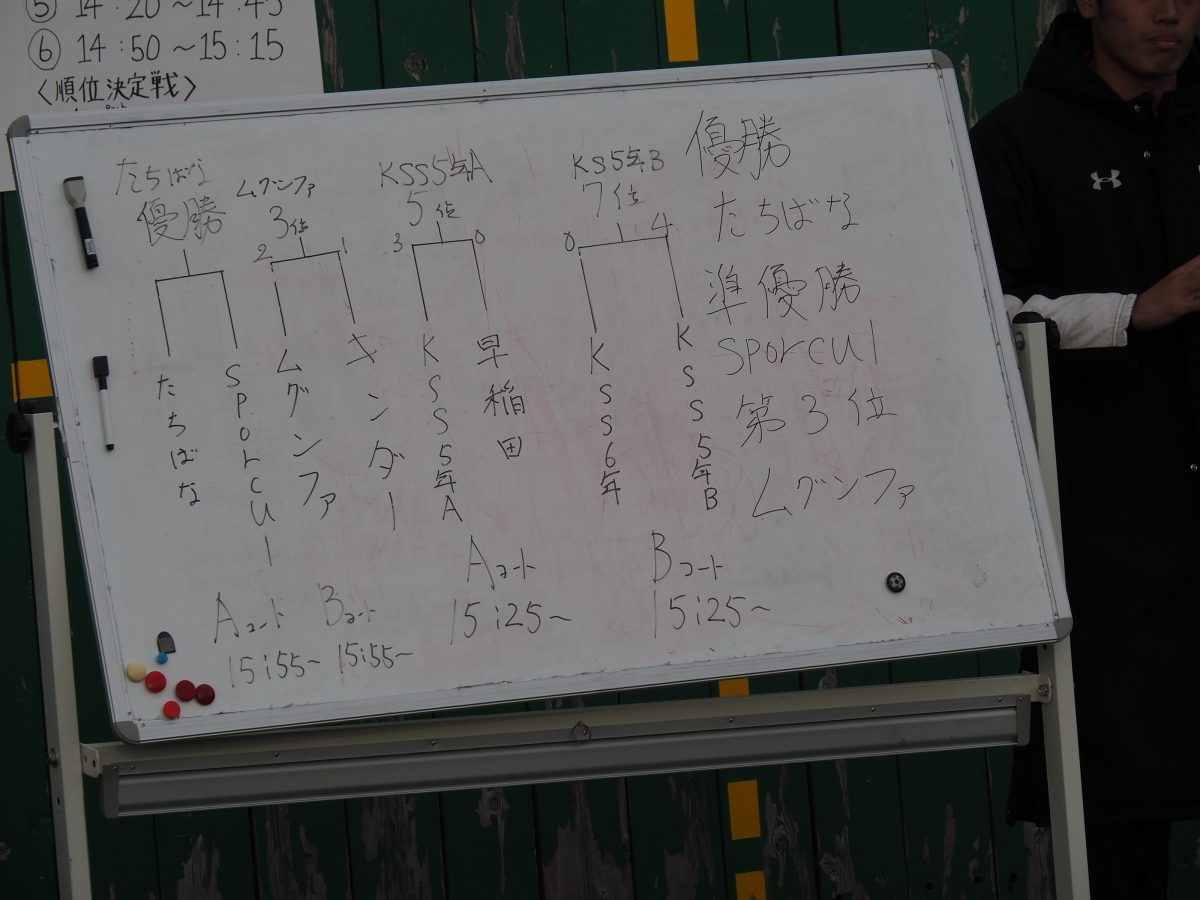 ⑤ 14:20〜14:45
⑥ 14:50〜15:15
〈順位決定戦〉
たちばな
優勝
たちばな
SPOrCUl
ムグンファ
3位
2 1
ムグンファ
キンダー
KSS5年A
5位
3 0
KSS5年A
早稲田
KS5年B
7位
0 4
KSS6年
KSS5年B
優勝
たちばな
準優勝
SPOrCUl
第3位
ムグンファ
Aコート
15:55〜
Bコート
15:55〜
Aコート
15:25〜
Bコート
15:25〜